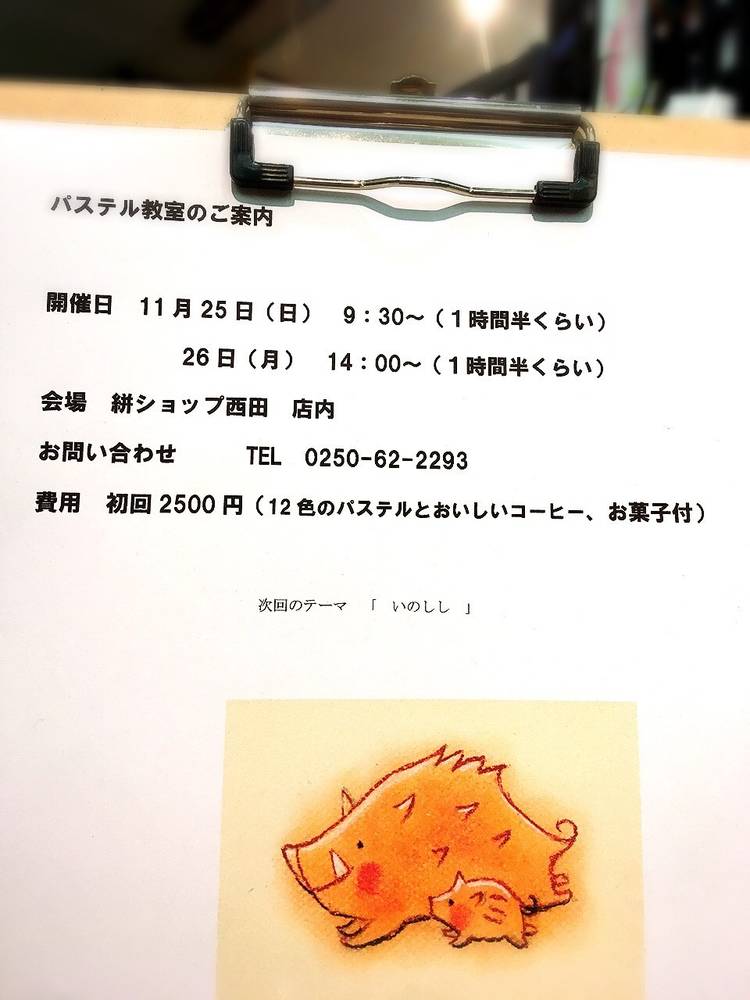 パステル教室のご案内
開催日　11月25日（日）　9：30～（１時間半くらい）
26日（月）　14：00～（１時間半くらい）
会場　絣ショップ西田　店内
お問い合わせ　　　TEL　0250-62-2293
費用　初回2500円（12色のパステルとおいしいコーヒー、お菓子付）
次回のテーマ　「　いのしし　」